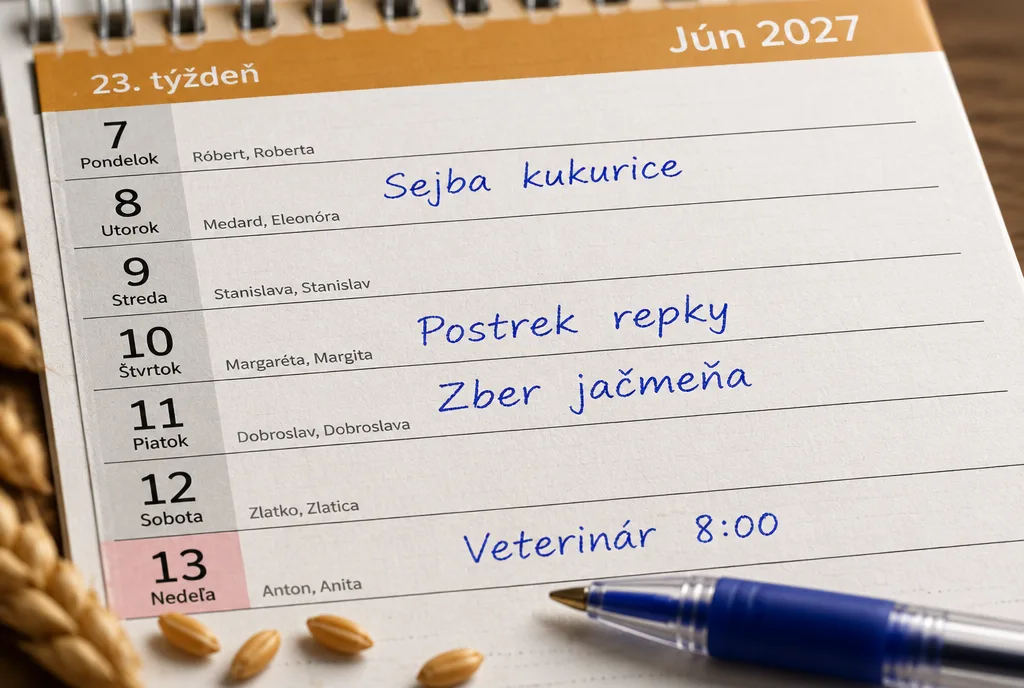 23. týždeň
Jún 2027
7
Pondelok
Róbert, Roberta
8
Utorok
Medard, Eleonóra
Sejba kukurice
9
Streda
Stanislava, Stanislav
10
Štvrtok
Margaréta, Margita
Postrek repky
11
Piatok
Dobroslav, Dobroslava
Zber jačmeňa
12
Sobota
Zlatko, Zlatica
13
Nedeľa
Anton, Anita
Veterinár 8:00